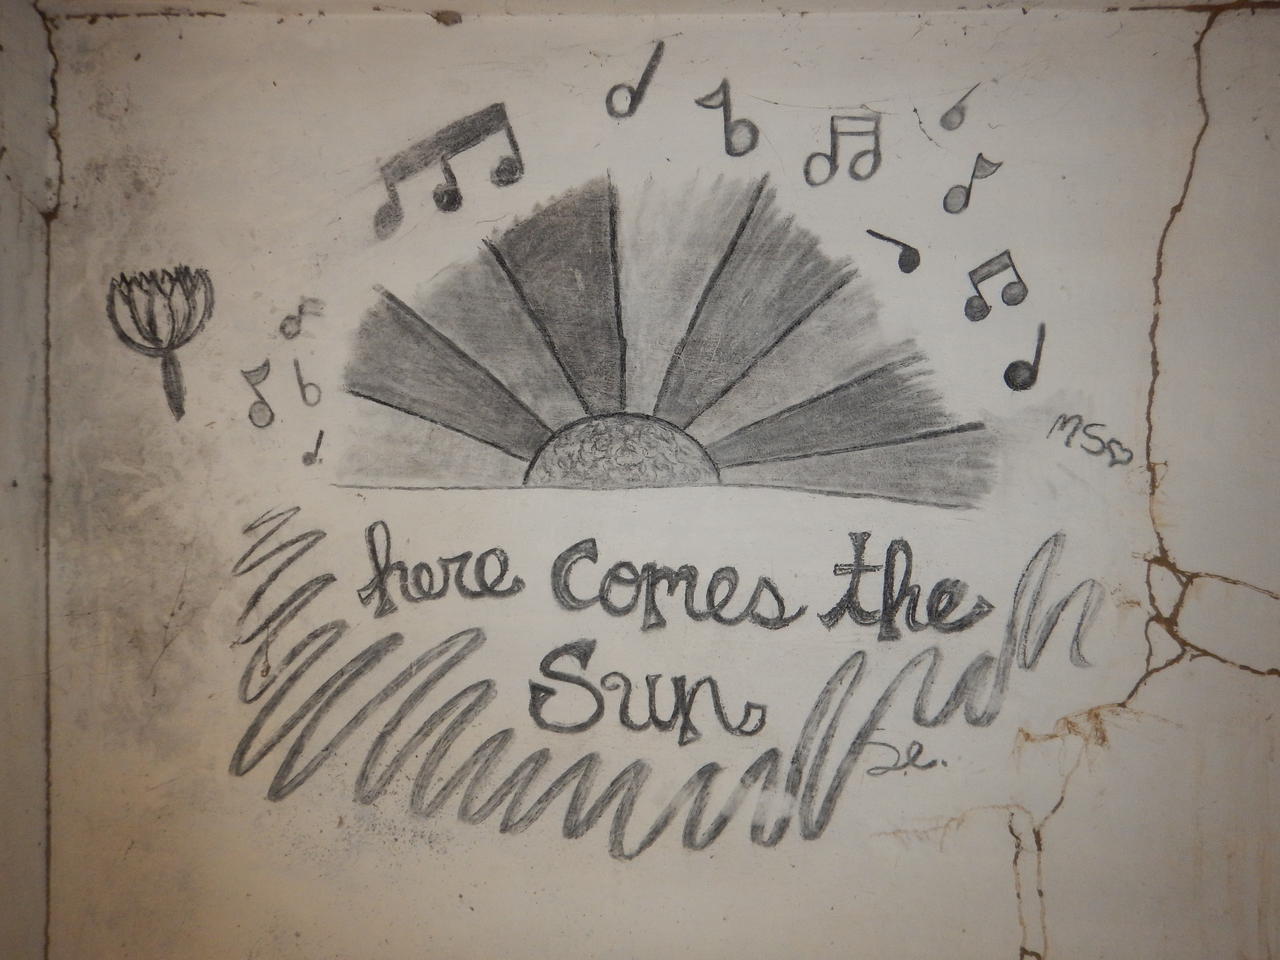 MS
here comes the
Sun